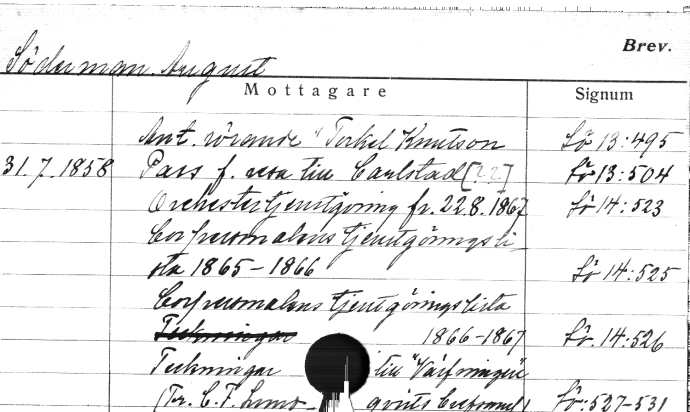 Brev.
Söderman August
Mottagare Signum
Ant. rörande "Torkel Knutson Sö 13:495
31.7.1858 Pass f. resa till Carlstad [??] Sö 13:504
Orchestertjenstgöring fr. 22.8.1867 Sö 14:523
Corpsernalens tjenstgöringsli-
sta 1865-1866 Sö 14:525
tjenstgöringslista
Teckningar 1866-1867 Sö. 14:526
Teckningar till "Värfningen"
(Fr. C. F. Sö:527-531